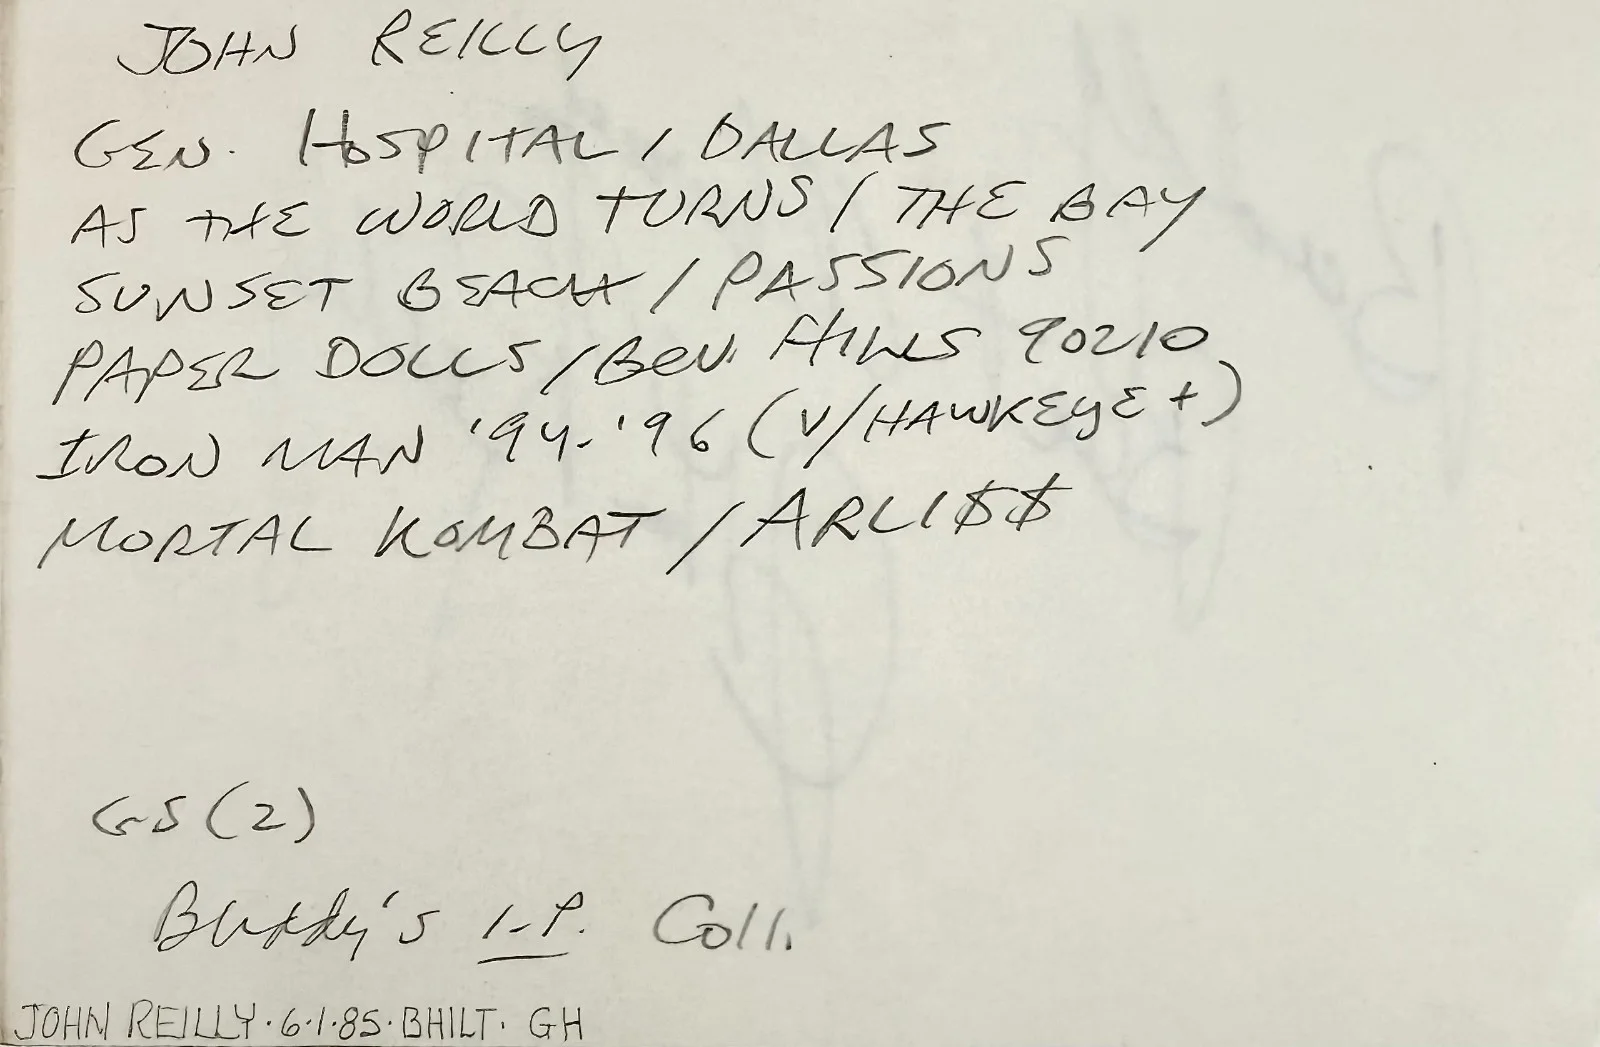 JOHN REILLY
GEN. HOSPITAL / DALLAS
AS THE WORLD TURNS / THE BAY
SUNSET BEACH / PASSIONS
PAPER DOLLS / BEV. HILLS 90210
IRON MAN '94-'96 (V/HAWKEYE +)
MORTAL KOMBAT / ARLI$$
GS (2)
Buddy's I.P. Coll.
JOHN REILLY · 6·1·85 · BHILT · GH